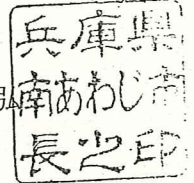 兵庫県
南あわじ市
長之印